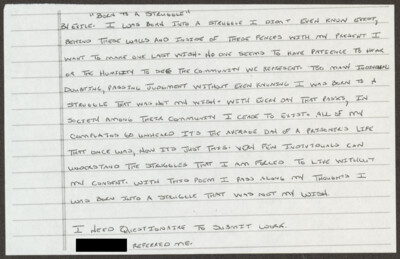 "Born To A Struggle"
Hustle. I was born into a struggle I didn't even know exist,
behind these walls and inside of these fences with my present I
want to make one last wish. No one seems to have patience to hear
or the humility to see the community we represent. Too many individuals
doubting, passing judgment without even knowing I was born to a
struggle that was not my wish. With every day that passes, in
society among these community I cease to exist. All of my
complaints go unheard its the average day of a prisoner's life
that once was, now its just this. Very few individuals can
understand the struggles that I am forced to live without
my consent. With this poem I pass along my thoughts I
was born into a struggle that was not my wish.
I need questionaire to submit work.
referred me.